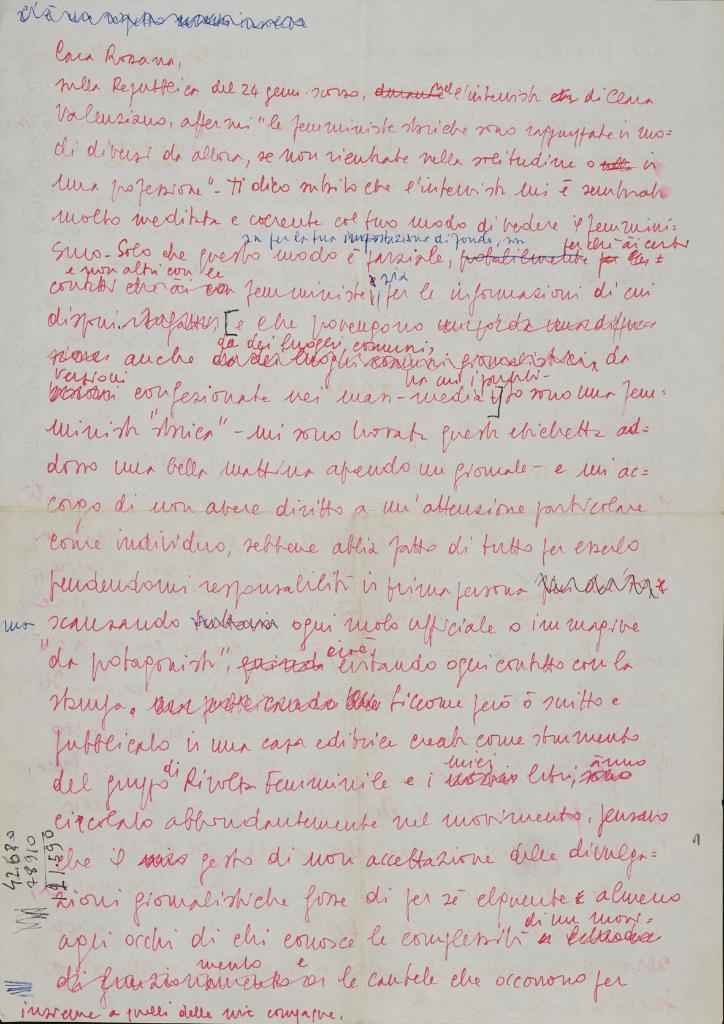 Cara Rossana,
sulla Repubblica del 24 genn. scorso, nel l'intervista di Clara
Valenziano, affermi "le femministe storiche sono rappuntate in mo=
di diversi da allora, se non rientrate nella solitudine o in
una professione" - Ti dico subito che l'intervista mi è sembrata
molto meditata e coerente col tuo modo di vedere il femmini=
smo - Solo che questo modo è parziale, sia per la tua impostazione di fondo, sia per chi ài certi
contatti e non altri con le femministe, sia per le informazioni di cui
disponi [e che provengono
anche da dei luoghi comuni, da
versioni confezionate nei mass-media] Io sono una fem=
minista "storica" - mi sono trovata questa etichetta ad=
dosso una bella mattina aprendo un giornale - e mi ac=
corgo di non avere diritto a un'attenzione particolare
come individuo, sebbene abbia fatto di tutto per esserlo
prendendomi responsabilità in prima persona
ma scansando ogni ruolo ufficiale o immagine
"da protagonista", cioè evitando ogni contatto con la
stampa. Siccome però ò scritto e
pubblicato in una casa editrice creata come strumento
del gruppo di Rivolta Femminile e i miei libri ànno
circolato abbondantemente nel movimento, pensavo
che il gesto di non accettazione delle divulga=
zioni giornalistiche fosse di per sé eloquente almeno
agli occhi di chi conosce le complessità di un movi=
mento e le cautele che occorrono per
insieme a quelli delle mie compagne.
42680
78910
121.590
1